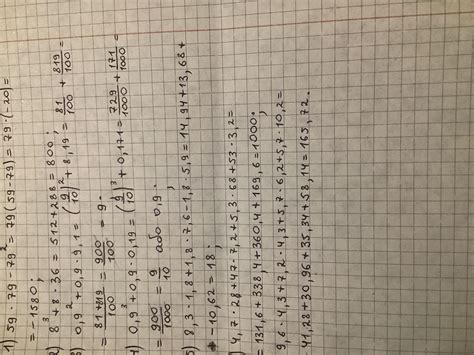 1) 59 · 79 - 79² = 79(59-79) = 79 · (-20) =
= -1580;
2) 8³ + 8 · 36 = 512 + 288 = 800;
3) 0,9² + 0,9 · 9,1 = (9/10)² + 8,19 = 81/100 + 819/100 =
= 81+819/100 = 900/100 = 9.
4) 0,9³ + 0,9 · 0,19 = (9/10)³ + 0,171 = 729/1000 + 171/1000 =
= 900/1000 = 9/10 або 0,9.
5) 8,3 · 1,8 + 1,8 · 7,6 - 1,8 · 5,9 = 14,94 + 13,68 +
- 10,62 = 18;
) 4,7 · 28 + 47 · 7,2 + 5,3 · 68 + 53 · 3,2 =
= 131,6 + 338,4 + 360,4 + 169,6 = 1000.
9,6 · 4,3 + 7,2 · 4,3 + 5,7 · 6,2 + 5,7 · 10,2 =
= 41,28 + 30,96 + 35,34 + 58,14 = 165,72.